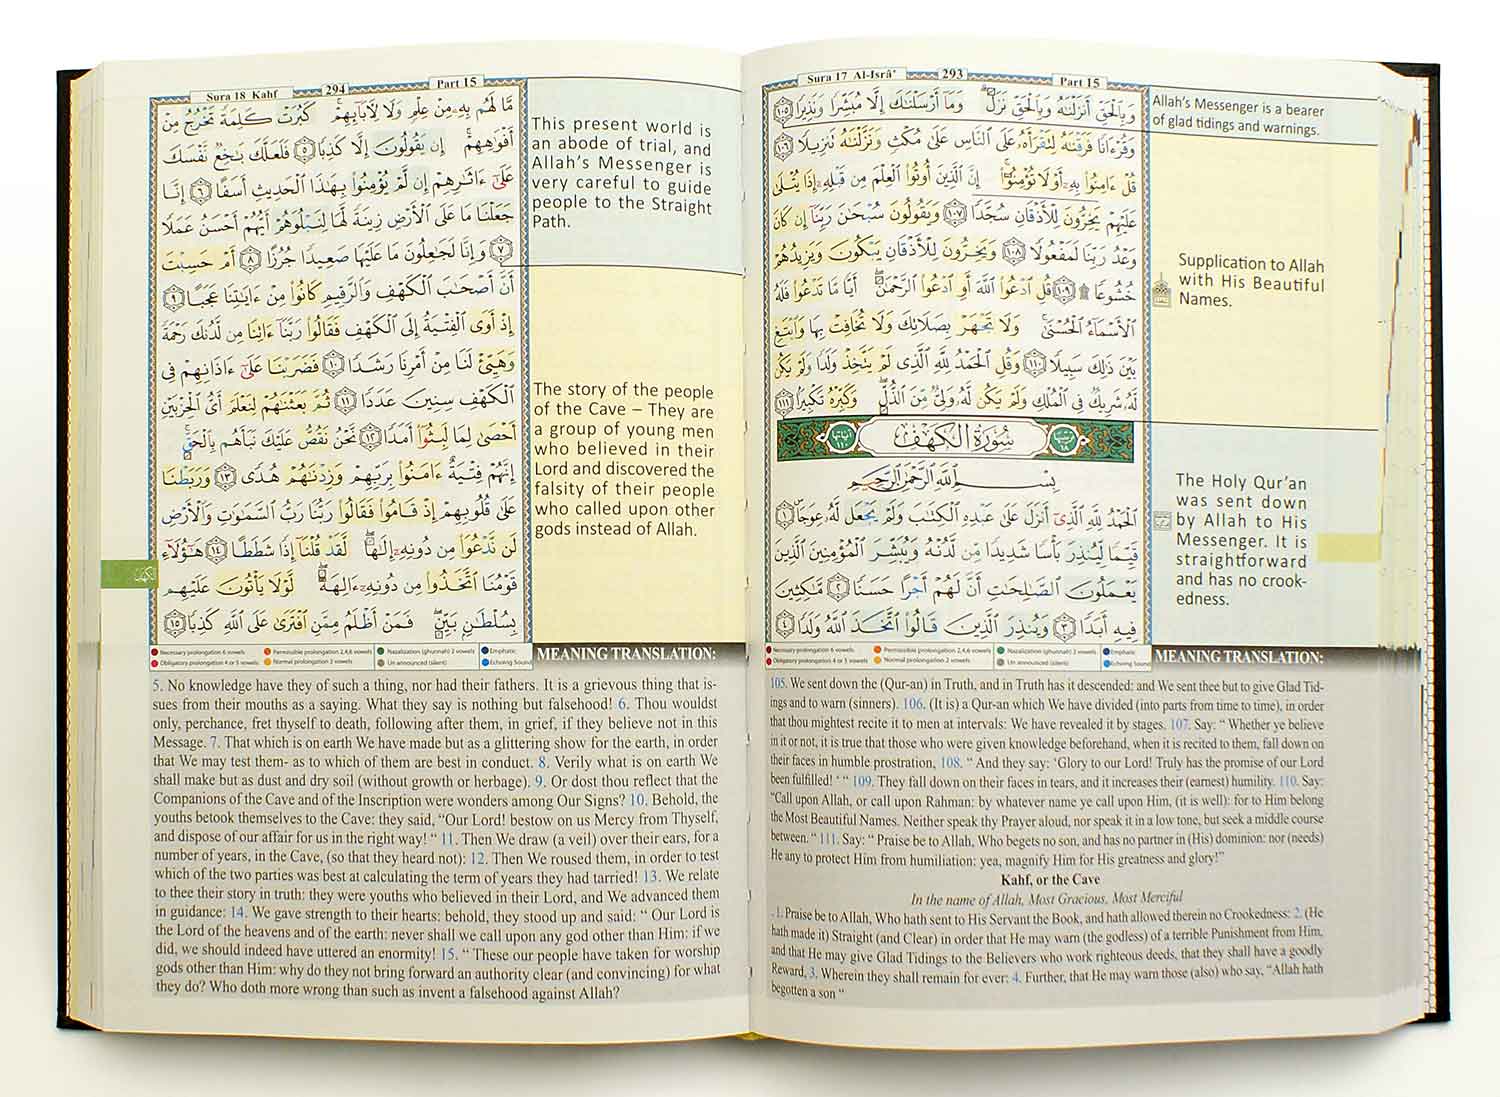 Sura 17 Al-Isrâ’
293
Part 15
وَبِٱلْحَقِّ أَنزَلْنَٰهُ وَبِٱلْحَقِّ نَزَلَ ۗ وَمَآ أَرْسَلْنَٰكَ إِلَّا مُبَشِّرًا وَنَذِيرًا ١٠٥
وَقُرْءَانًا فَرَقْنَٰهُ لِتَقْرَأَهُۥ عَلَى ٱلنَّاسِ عَلَىٰ مُكْثٍ وَنَزَّلْنَٰهُ تَنزِيلًا ١٠٦
قُلْ ءَامِنُوا۟ بِهِۦٓ أَوْ لَا تُؤْمِنُوٓا۟ ۚ إِنَّ ٱلَّذِينَ أُوتُوا۟ ٱلْعِلْمَ مِن قَبْلِهِۦٓ إِذَا يُتْلَىٰ
عَلَيْهِمْ يَخِرُّونَ لِلْأَذْقَانِ سُجَّدًا ١٠٧ وَيَقُولُونَ سُبْحَٰنَ رَبِّنَآ إِن كَانَ
وَعْدُ رَبِّنَا لَمَفْعُولًا ١٠٨ وَيَخِرُّونَ لِلْأَذْقَانِ يَبْكُونَ وَيَزِيدُهُمْ
خُشُوعًا ۩ ١٠٩ قُلِ ٱدْعُوا۟ ٱللَّهَ أَوِ ٱدْعُوا۟ ٱلرَّحْمَٰنَ ۖ أَيًّا مَّا تَدْعُوا۟ فَلَهُ
ٱلْأَسْمَآءُ ٱلْحُسْنَىٰ ۚ وَلَا تَجْهَرْ بِصَلَاتِكَ وَلَا تُخَافِتْ بِهَا وَٱبْتَغِ
بَيْنَ ذَٰلِكَ سَبِيلًا ١١٠ وَقُلِ ٱلْحَمْدُ لِلَّهِ ٱلَّذِى لَمْ يَتَّخِذْ وَلَدًا وَلَمْ يَكُن
لَّهُۥ شَرِيكٌ فِى ٱلْمُلْكِ وَلَمْ يَكُن لَّهُۥ وَلِىٌّ مِّنَ ٱلذُّلِّ ۖ وَكَبِّرْهُ تَكْبِيرًا ١١١
سُورَةُ الكَهْفِ
آياتها ١١٠
بِسْمِ ٱللَّهِ ٱلرَّحْمَٰنِ ٱلرَّحِيمِ
ٱلْحَمْدُ لِلَّهِ ٱلَّذِىٓ أَنزَلَ عَلَىٰ عَبْدِهِ ٱلْكِتَٰبَ وَلَمْ يَجْعَل لَّهُۥ عِوَجَا ۜ ١
قَيِّمًا لِّيُنذِرَ بَأْسًا شَدِيدًا مِّن لَّدُنْهُ وَيُبَشِّرَ ٱلْمُؤْمِنِينَ ٱلَّذِينَ
يَعْمَلُونَ ٱلصَّٰلِحَٰتِ أَنَّ لَهُمْ أَجْرًا حَسَنًا ٢ مَّٰكِثِينَ
فِيهِ أَبَدًا ٣ وَيُنذِرَ ٱلَّذِينَ قَالُوا۟ ٱتَّخَذَ ٱللَّهُ وَلَدًا ٤
Allah’s Messenger is a bearer
of glad tidings and warnings.
Supplication to Allah
with His Beautiful
Names.
The Holy Qur’an
was sent down
by Allah to His
Messenger. It is
straightforward
and has no crook-
edness.
Necessary prolongation 6 vowels
Permissible prolongation 2,4,6 vowels
Nazalization (ghunnah) 2 vowels
Emphatic
Obligatory prolongation 4 or 5 vowels
Normal prolongation 2 vowels
Un announced (silent)
Echoing Sound
MEANING TRANSLATION:
105. We sent down the (Qur-an) in Truth, and in Truth has it descended: and We sent thee but to give Glad Tid-
ings and to warn (sinners). 106. (It is) a Qur-an which We have divided (into parts from time to time), in order
that thou mightest recite it to men at intervals: We have revealed it by stages. 107. Say: “ Whether ye believe
in it or not, it is true that those who were given knowledge beforehand, when it is recited to them, fall down on
their faces in humble prostration, 108. “ And they say: ‘Glory to our Lord! Truly has the promise of our Lord
been fulfilled! ‘ “ 109. They fall down on their faces in tears, and it increases their (earnest) humility. 110. Say:
“Call upon Allah, or call upon Rahman: by whatever name ye call upon Him, (it is well): for to Him belong
the Most Beautiful Names. Neither speak thy Prayer aloud, nor speak it in a low tone, but seek a middle course
between. “ 111. Say: “ Praise be to Allah, Who begets no son, and has no partner in (His) dominion: nor (needs)
He any to protect Him from humiliation: yea, magnify Him for His greatness and glory!”
Kahf, or the Cave
In the name of Allah, Most Gracious, Most Merciful
.1. Praise be to Allah, Who hath sent to His Servant the Book, and hath allowed therein no Crookedness: 2. (He
hath made it) Straight (and Clear) in order that He may warn (the godless) of a terrible Punishment from Him,
and that He may give Glad Tidings to the Believers who work righteous deeds, that they shall have a goodly
Reward, 3. Wherein they shall remain for ever: 4. Further, that He may warn those (also) who say, “Allah hath
begotten a son “
Sura 18 Kahf
294
Part 15
مَّا لَهُم بِهِۦ مِنْ عِلْمٍ وَلَا لِءَابَآئِهِمْ ۚ كَبُرَتْ كَلِمَةً تَخْرُجُ مِنْ
أَفْوَٰهِهِمْ ۚ إِن يَقُولُونَ إِلَّا كَذِبًا ٥ فَلَعَلَّكَ بَٰخِعٌ نَّفْسَكَ
عَلَىٰٓ ءَاثَٰرِهِمْ إِن لَّمْ يُؤْمِنُوا۟ بِهَٰذَا ٱلْحَدِيثِ أَسَفًا ٦ إِنَّا
جَعَلْنَا مَا عَلَى ٱلْأَرْضِ زِينَةً لَّهَا لِنَبْلُوَهُمْ أَيُّهُمْ أَحْسَنُ عَمَلًا
٧ وَإِنَّا لَجَٰعِلُونَ مَا عَلَيْهَا صَعِيدًا جُرُزًا ٨ أَمْ حَسِبْتَ
أَنَّ أَصْحَٰبَ ٱلْكَهْفِ وَٱلرَّقِيمِ كَانُوا۟ مِنْ ءَايَٰتِنَا عَجَبًا ٩
إِذْ أَوَى ٱلْفِتْيَةُ إِلَى ٱلْكَهْفِ فَقَالُوا۟ رَبَّنَآ ءَاتِنَا مِن لَّدُنكَ رَحْمَةً
وَهَيِّئْ لَنَا مِنْ أَمْرِنَا رَشَدًا ١٠ فَضَرَبْنَا عَلَىٰٓ ءَاذَانِهِمْ فِى
ٱلْكَهْفِ سِنِينَ عَدَدًا ١١ ثُمَّ بَعَثْنَٰهُمْ لِنَعْلَمَ أَىُّ ٱلْحِزْبَيْنِ
أَحْصَىٰ لِمَا لَبِثُوٓا۟ أَمَدًا ١٢ نَّحْنُ نَقُصُّ عَلَيْكَ نَبَأَهُم بِٱلْحَقِّ ۚ
إِنَّهُمْ فِتْيَةٌ ءَامَنُوا۟ بِرَبِّهِمْ وَزِدْنَٰهُمْ هُدًى ١٣ وَرَبَطْنَا
عَلَىٰ قُلُوبِهِمْ إِذْ قَامُوا۟ فَقَالُوا۟ رَبُّنَا رَبُّ ٱلسَّمَٰوَٰتِ وَٱلْأَرْضِ
لَن نَّدْعُوَا۟ مِن دُونِهِۦٓ إِلَٰهًا ۖ لَّقَدْ قُلْنَآ إِذًا شَطَطًا ١٤ هَٰٓؤُلَآءِ
قَوْمُنَا ٱتَّخَذُوا۟ مِن دُونِهِۦٓ ءَالِهَةً ۖ لَّوْلَا يَأْتُونَ عَلَيْهِم
بِسُلْطَٰنٍۭ بَيِّنٍ ۖ فَمَنْ أَظْلَمُ مِمَّنِ ٱفْتَرَىٰ عَلَى ٱللَّهِ كَذِبًا ١٥
الكهف
This present world is
an abode of trial, and
Allah’s Messenger is
very careful to guide
people to the Straight
Path.
The story of the people
of the Cave – They are
a group of young men
who believed in their
Lord and discovered the
falsity of their people
who called upon other
gods instead of Allah.
Necessary prolongation 6 vowels
Permissible prolongation 2,4,6 vowels
Nazalization (ghunnah) 2 vowels
Emphatic
Obligatory prolongation 4 or 5 vowels
Normal prolongation 2 vowels
Un announced (silent)
Echoing Sound
MEANING TRANSLATION:
5. No knowledge have they of such a thing, nor had their fathers. It is a grievous thing that is-
sues from their mouths as a saying. What they say is nothing but falsehood! 6. Thou wouldst
only, perchance, fret thyself to death, following after them, in grief, if they believe not in this
Message. 7. That which is on earth We have made but as a glittering show for the earth, in order
that We may test them- as to which of them are best in conduct. 8. Verily what is on earth We
shall make but as dust and dry soil (without growth or herbage). 9. Or dost thou reflect that the
Companions of the Cave and of the Inscription were wonders among Our Signs? 10. Behold, the
youths betook themselves to the Cave: they said, “Our Lord! bestow on us Mercy from Thyself,
and dispose of our affair for us in the right way! “ 11. Then We draw (a veil) over their ears, for a
number of years, in the Cave, (so that they heard not): 12. Then We roused them, in order to test
which of the two parties was best at calculating the term of years they had tarried! 13. We relate
to thee their story in truth: they were youths who believed in their Lord, and We advanced them
in guidance: 14. We gave strength to their hearts: behold, they stood up and said: “ Our Lord is
the Lord of the heavens and of the earth: never shall we call upon any god other than Him: if we
did, we should indeed have uttered an enormity! 15. “ These our people have taken for worship
gods other than Him: why do they not bring forward an authority clear (and convincing) for what
they do? Who doth more wrong than such as invent a falsehood against Allah?